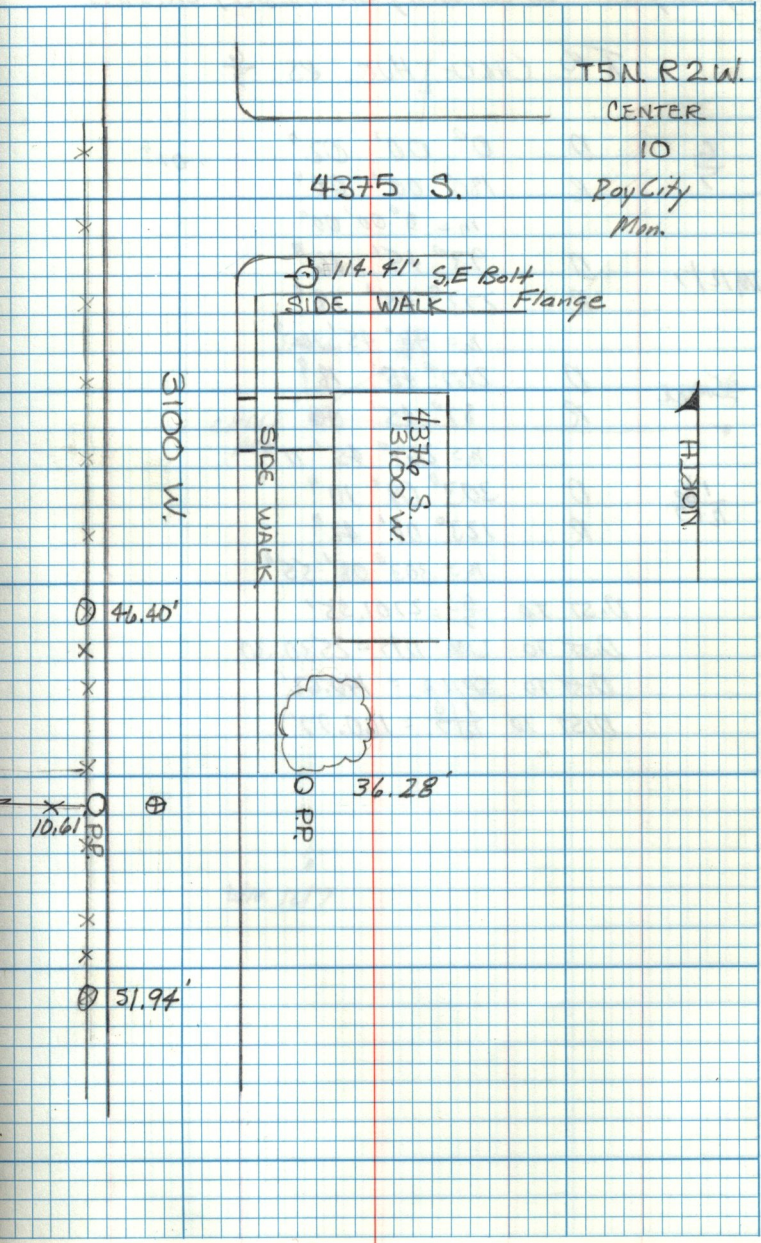 T5N. R2W.
CENTER
10
Roy City
Mon.
4375 S.
114.41' S.E Bolt
Flange
SIDE WALK
3100 W.
SIDE WALK
4376 S.
3100 W.
NORTH
46.40'
36.28'
P.P.
10.61'
P.P.
51.94'